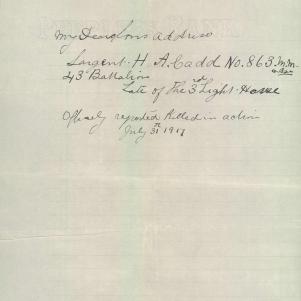 My Dear Sons address
Sargent H. A. Cadd No. 863 M.M.
43rd Battalion
Late of the 3rd Light Horse
Officely reported killed in action
July 31st 1917